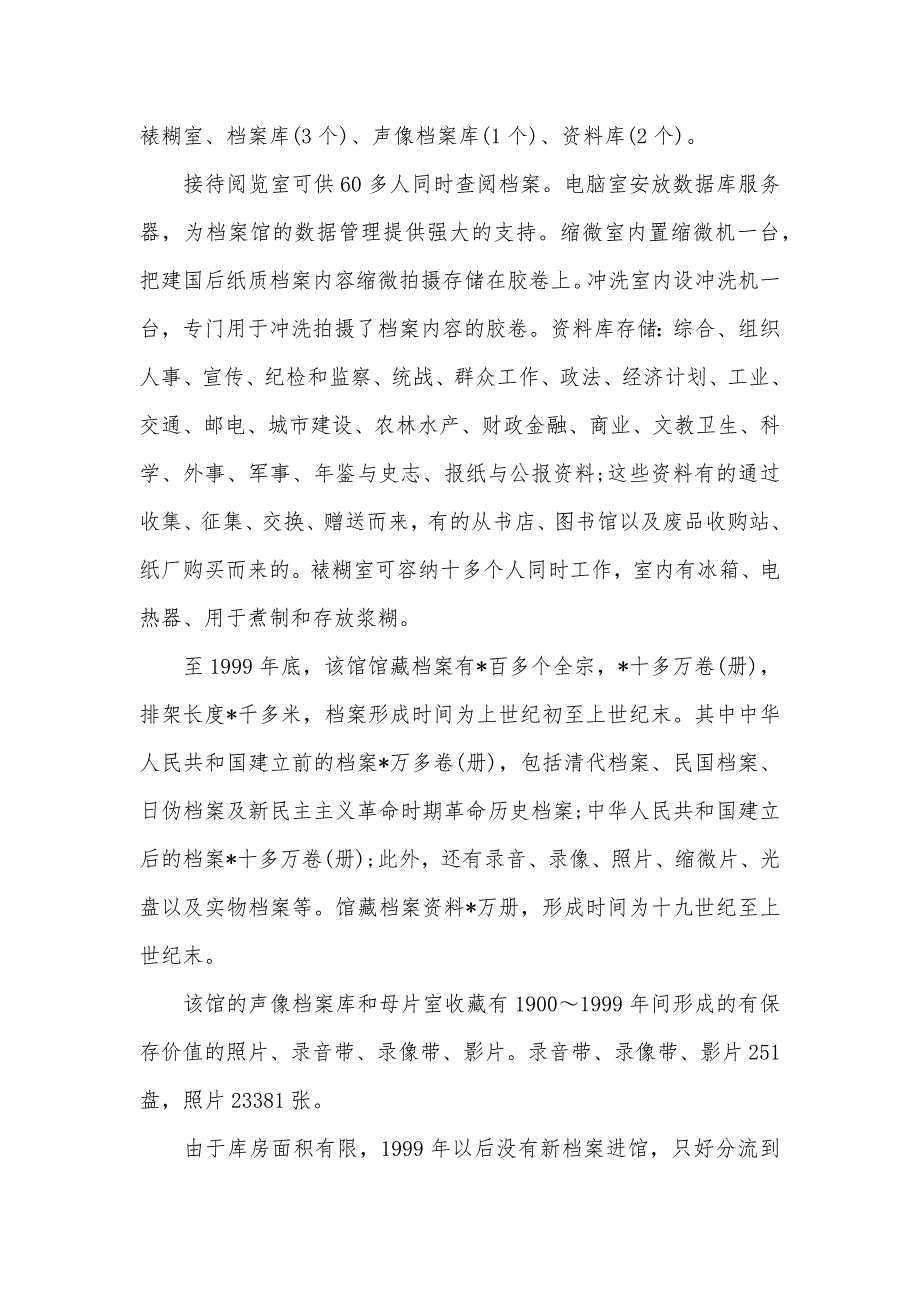 裱糊室、档案库(3 个)、声像档案库(1 个)、资料库(2 个)。
接待阅览室可供 60 多人同时查阅档案。电脑室安放数据库服务
器，为档案馆的数据管理提供强大的支持。缩微室内置缩微机一台，
把建国后纸质档案内容缩微拍摄存储在胶卷上。冲洗室内设冲洗机一
台，专门用于冲洗拍摄了档案内容的胶卷。资料库存储：综合、组织
人事、宣传、纪检和监察、统战、群众工作、政法、经济计划、工业、
交通、邮电、城市建设、农林水产、财政金融、商业、文教卫生、科
学、外事、军事、年鉴与史志、报纸与公报资料;这些资料有的通过
收集、征集、交换、赠送而来，有的从书店、图书馆以及废品收购站、
纸厂购买而来的。裱糊室可容纳十多个人同时工作，室内有冰箱、电
热器、用于煮制和存放浆糊。
至 1999 年底，该馆馆藏档案有*百多个全宗，*十多万卷(册)，
排架长度*千多米，档案形成时间为上世纪初至上世纪末。其中中华
人民共和国建立前的档案*万多卷(册)，包括清代档案、民国档案、
日伪档案及新民主主义革命时期革命历史档案;中华人民共和国建立
后的档案*十多万卷(册);此外，还有录音、录像、照片、缩微片、光
盘以及实物档案等。馆藏档案资料*万册，形成时间为十九世纪至上
世纪末。
该馆的声像档案库和母片室收藏有 1900～1999 年间形成的有保
存价值的照片、录音带、录像带、影片。录音带、录像带、影片 251
盘，照片 23381 张。
由于库房面积有限，1999 年以后没有新档案进馆，只好分流到